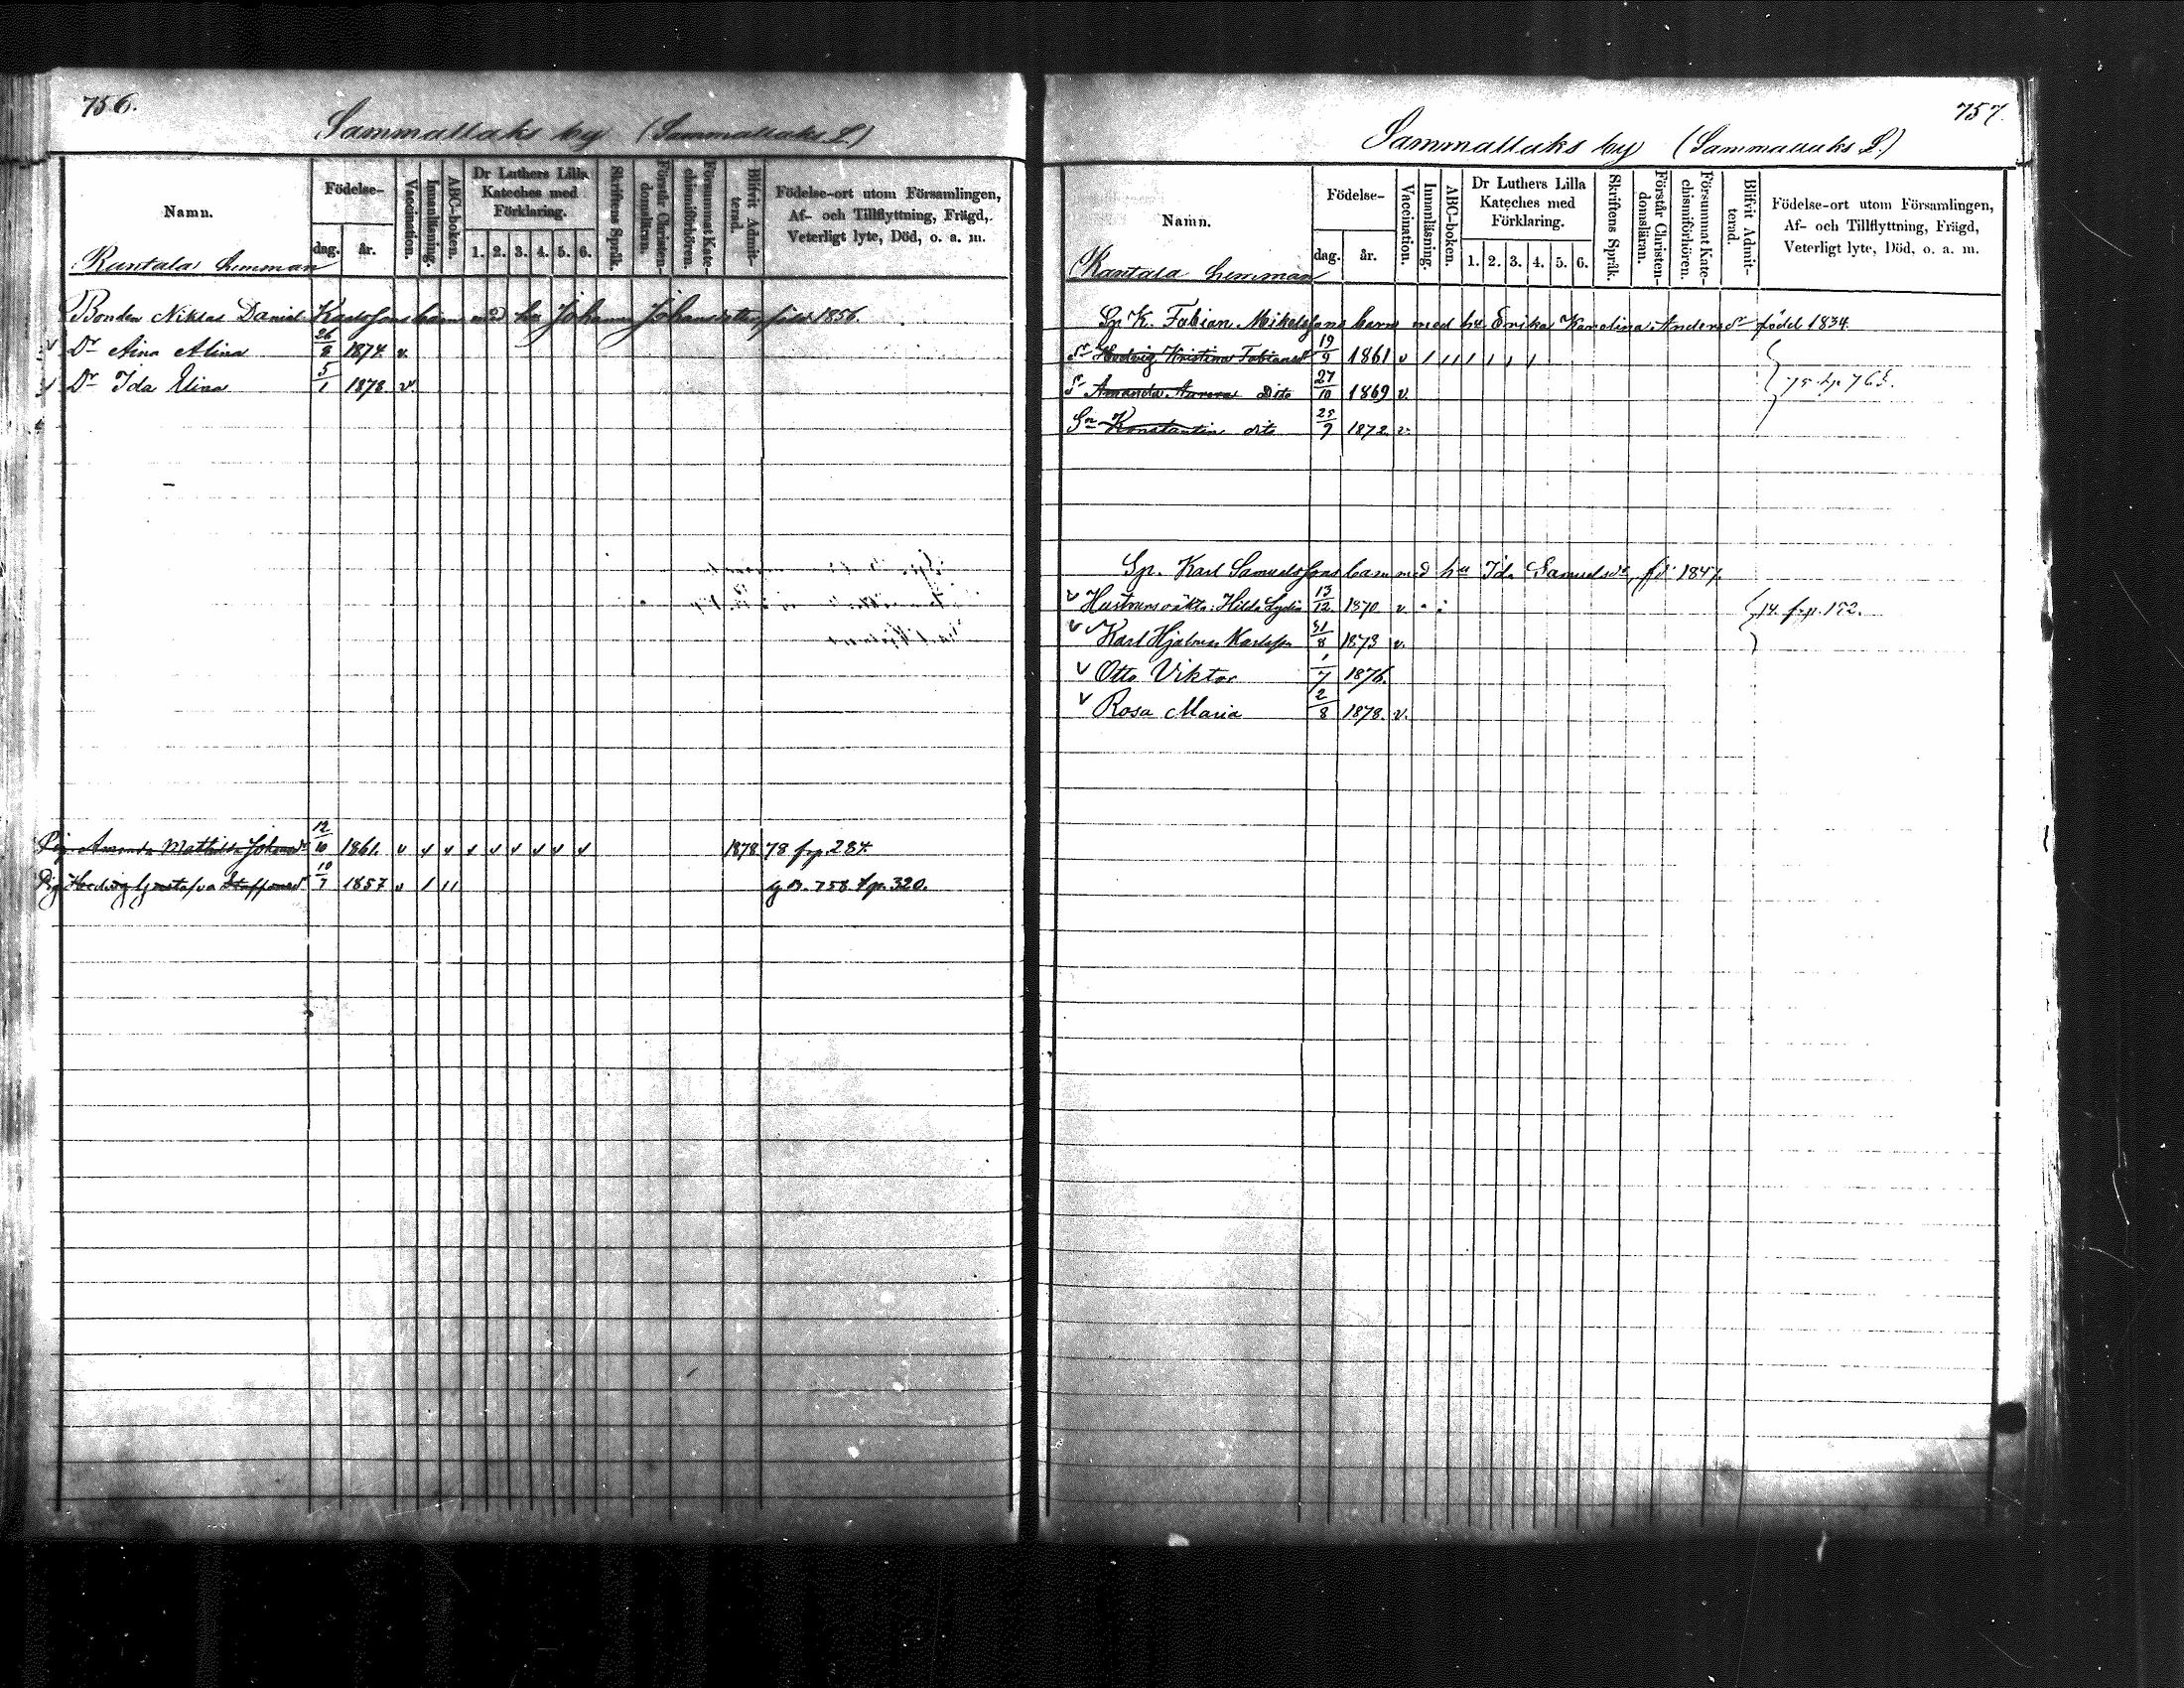 756.
Sammallaks by (Sammallaks L.)
Namn.
Födelse-
dag.
år.
Vaccination.
Innanläsning.
ABC-boken.
Dr Luthers Lilla Kateches med Förklaring.
1. 2. 3. 4. 5. 6.
Skriftens Språk.
Förstår Christendomsläran.
Försummat Katechismiförhören.
Blifrit Admitterad.
Födelse-ort utom Församlingen,
Af- och Tillflyttning, Frägd,
Veterligt lyte, Död, o. a. m.
Rantala hemman
Bonden Niklas Daniel Karlssons barn med hu Johanna Johansdotter, född 1856.
v Dr Aina Alina 26/8 1874. v.
v Dr Ida Elina 5/1 1878 v.
Pig. Amanda Mathilda Johansdr 12/10 1861. v v v v v v v v v 1878 78 frp. 284.
Pig Hedvig Gustafva Staffansdr 10/7 1857 v / // g B. 758. frp. 320.
757.
Sammallaks by (Sammallaks L.)
Namn.
Födelse-
dag.
år.
Vaccination.
Innanläsning.
ABC-boken.
Dr Luthers Lilla Kateches med Förklaring.
1. 2. 3. 4. 5. 6.
Skriftens Språk.
Förstår Christendomsläran.
Försummat Katechismiförhören.
Blifrit Admitterad.
Födelse-ort utom Församlingen,
Af- och Tillflyttning, Frägd,
Veterligt lyte, Död, o. a. m.
Rantala hemman
Sp K. Fabian Mikelssons barn med hu Erika Karolina Andersdr född 1834.
Dr Hedvig Kristina Fabiansdr 19/9 1861 v / // / / / /
Dr Amanda Aurora Dito 27/10 1869 v. 75 frp 765.
Sn Konstantin dito 25/9 1872. v.
Sp. Karl Samuelssons barn med hu Ida Samuelsdr, fd 1847.
v Hustruns oäkta: Hilda Lydia 13/12. 1870 v. 14. frp. 172.
v Karl Hjalmar Karlsson 31/8 1873 v.
v Otto Viktor 1/7 1876.
v Rosa Maria 2/8 1878. v.